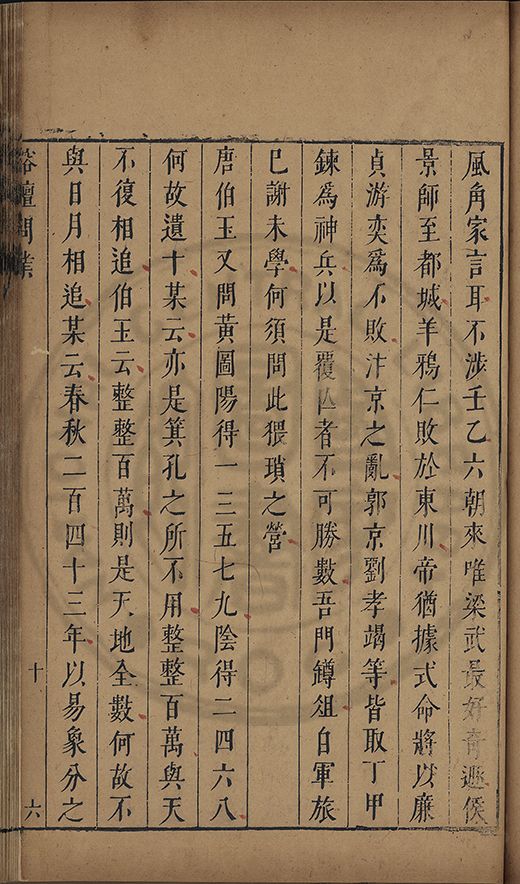 風角家言耳不涉壬乙六朝來唯梁武最好奇遯侯
景師至都城羊鴉仁敗於東川帝猶據式命將以廉
貞游奕爲不敗汴京之亂郭京劉孝竭等皆取丁甲
鍊爲神兵以是覆亾者不可勝數吾門罇俎自軍旅
巳謝未學何須問此猥瑣之營
唐伯玉又問黃圖陽得一三五七九陰得二四六八
何故遺十某云亦是箕孔之所不用整整百萬與天
不復相追伯玉云整整百萬則是天地全數何故不
與日月相追某云春秋二百四十三年以易象分之
榕壇問業
十
六